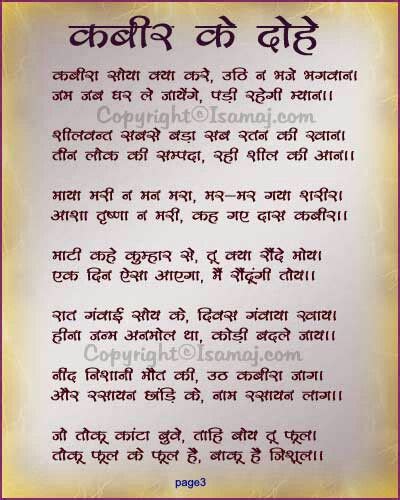 कबीर के दोहे
कबीरा सोया क्या करे, उठि न भजे भगवान।
जम जब घर ले जायेंगे, पड़ी रहेगी म्यान।।
Copyright©Isamaj.com
शीलवन्त सबसे बड़ा सब रतन की खान।
तीन लोक की सम्पदा, रही शील की आन।।
माया मरी न मन मरा, मर-मर गया शरीर।
आशा तृष्णा न मरी, कह गए दास कबीर।।
माटी कहे कुम्हार से, तू क्या रौंदे मोय।
एक दिन ऐसा आएगा, मैं रौंदूंगी तोय।।
रात गंवाई सोय के, दिवस गंवाया खाय।
हीना जन्म अनमोल था, कोड़ी बदले जाय।।
Copyright©Isamaj.com
नींद निशानी मौत की, उठ कबीरा जाग।
और रसायन छांड़ि के, नाम रसायन लाग।।
जो तोकू कांटा बुवे, ताहि बोय तू फूल।
तोकू फूल के फूल है, बाकू है त्रिशूल।।
page3